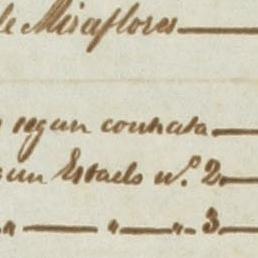 de Miraflores
segun contrata
segun Estado n.º 2.
" " " 3.